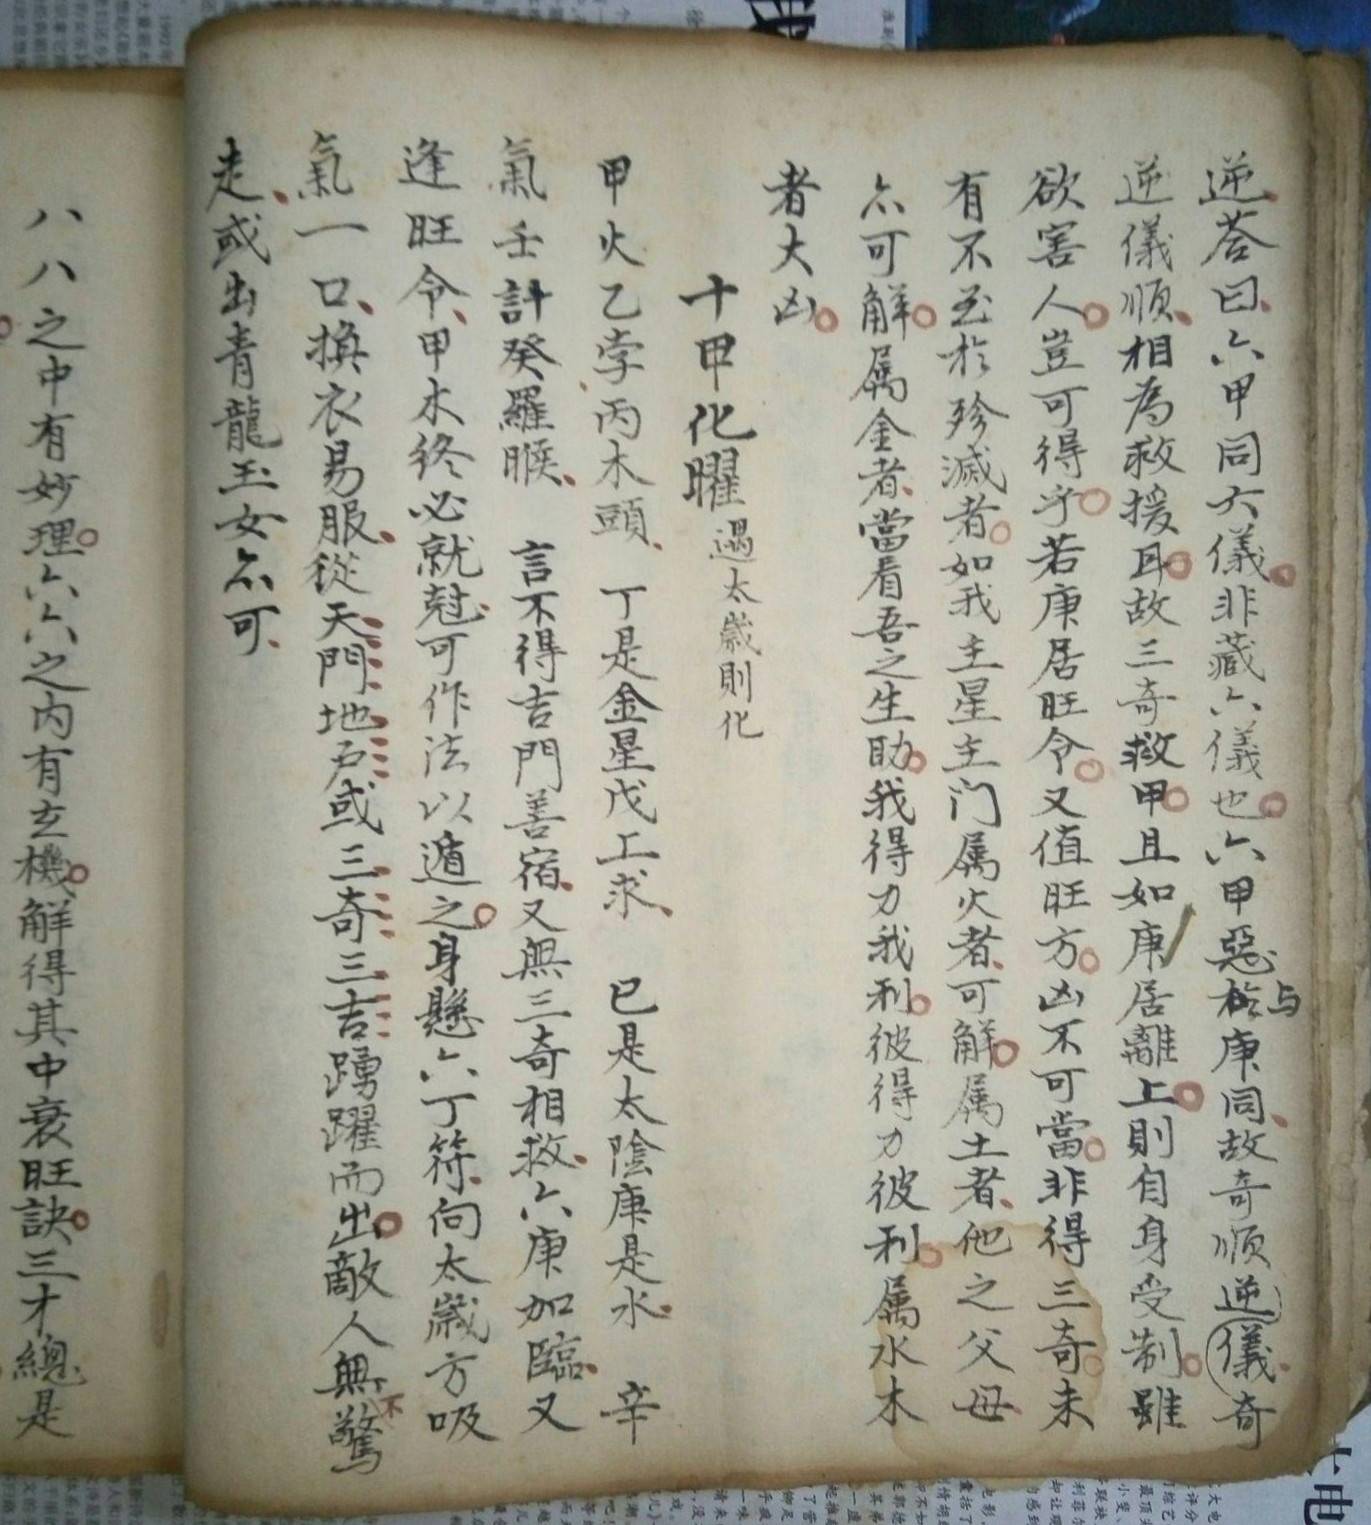 逆荅曰六甲同六儀非藏六儀也六甲惡於与庚同故奇順逆儀奇
逆儀順相為救援耳故三奇救甲且如庚居離上則自身受制雖
欲害人豈可得乎若庚居旺令又值旺方凶不可當非得三奇未
有不至於殄滅者如我主星主门属火者可解属土者他之父母
亦可解属金者當看吾之生助我得力我利彼得力彼利属水木
者大凶
十甲化曜 遇太歲則化
甲火乙孛丙木頭 丁是金星戊土求 已是太陰庚是水 辛
氣壬計癸羅睺 言不得吉門善宿又無三奇相救六庚加臨又
逢旺令甲木終必就尅可作法以遁之身懸六丁符向太歲方吸
氣一口換衣易服從天門地户或三奇三吉踴躍而出敵人無不驚
走或出青龍玉女亦可
八八之中有妙理六六之内有玄機解得其中衰旺訣三才總是